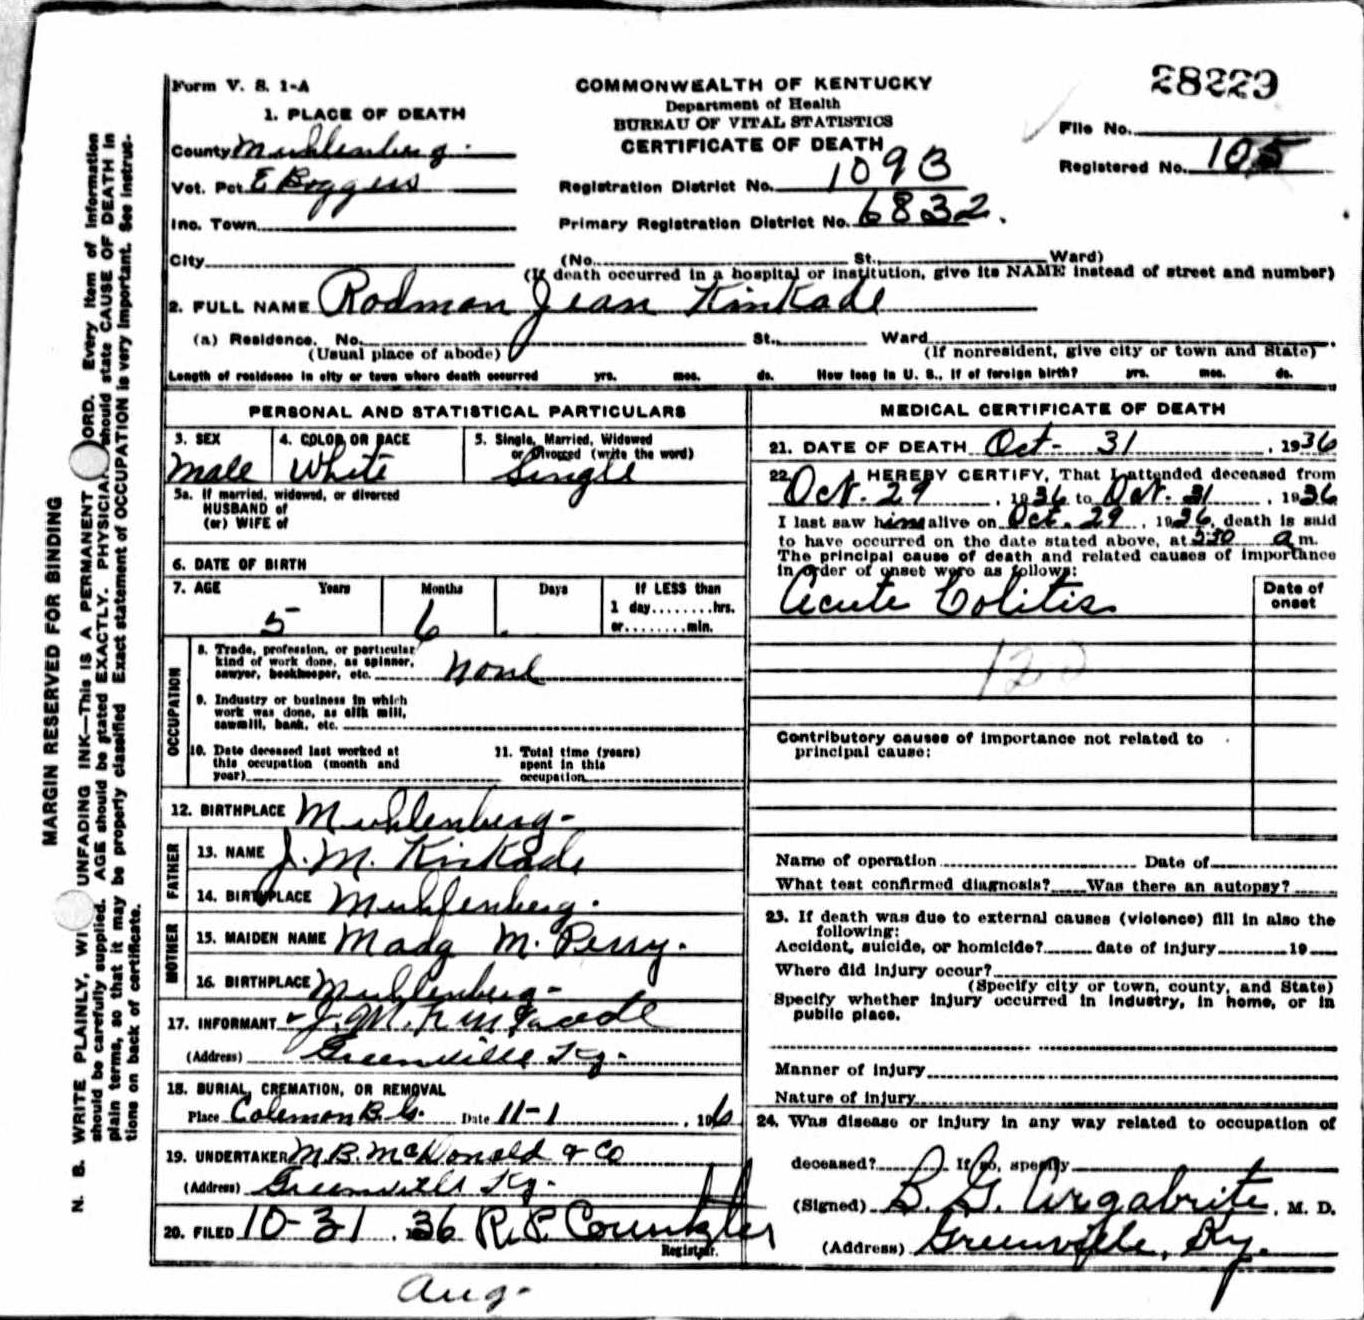 28229
Form V. S. 1-A
COMMONWEALTH OF KENTUCKY
Department of Health
BUREAU OF VITAL STATISTICS
CERTIFICATE OF DEATH
File No.
Registered No. 105
1. PLACE OF DEATH
County Muhlenberg.
Vot. Pct E Boggess
Inc. Town
City
Registration District No. 1093
Primary Registration District No. 6832.
(No. St., Ward)
(If death occurred in a hospital or institution, give its NAME instead of street and number)
2. FULL NAME Rodman Jean Kinkade
(a) Residence. No. St., Ward
(Usual place of abode) (If nonresident, give city or town and State)
Length of residence in city or town where death occurred yrs. mos. ds. How long in U. S., if of foreign birth? yrs. mos. ds.
PERSONAL AND STATISTICAL PARTICULARS
3. SEX 4. COLOR OR RACE 5. Single, Married, Widowed
or Divorced (write the word)
Male White Single
5a. If married, widowed, or divorced
HUSBAND of
(or) WIFE of
6. DATE OF BIRTH
7. AGE Years Months Days If LESS than
1 day........hrs.
or........min.
5 6
OCCUPATION
8. Trade, profession, or particular
kind of work done, as spinner,
sawyer, bookkeeper, etc. None
9. Industry or business in which
work was done, as silk mill,
sawmill, bank, etc.
10. Date deceased last worked at
this occupation (month and
year)
11. Total time (years)
spent in this
occupation
12. BIRTHPLACE Muhlenberg-
FATHER
13. NAME J. M. Kinkade
14. BIRTHPLACE Muhlenberg.
MOTHER
15. MAIDEN NAME Madg M. Perry.
16. BIRTHPLACE Muhlenberg-
17. INFORMANT J. M. Kinkade
(Address) Greenville Ky.
18. BURIAL, CREMATION, OR REMOVAL
Place Coleman B. G. Date 11-1, 196
19. UNDERTAKER M. B. McDonald & Co
(Address) Greenville Ky.
20. FILED 10-31, 36 R. P. Countzler
Registrar.
Aug-
MEDICAL CERTIFICATE OF DEATH
21. DATE OF DEATH Oct- 31, 1936
22. HEREBY CERTIFY, That I attended deceased from
Oct. 29, 1936 to Oct. 31, 1936
I last saw him alive on Oct. 29, 1936, death is said
to have occurred on the date stated above, at 5:30 a m.
The principal cause of death and related causes of importance
in order of onset were as follows:
Date of
onset
Acute Colitis
120
Contributory causes of importance not related to
principal cause:
Name of operation Date of
What test confirmed diagnosis? Was there an autopsy?
23. If death was due to external causes (violence) fill in also the
following:
Accident, suicide, or homicide? date of injury 19
Where did injury occur?
(Specify city or town, county, and State)
Specify whether injury occurred in industry, in home, or in
public place.
Manner of injury
Nature of injury
24. Was disease or injury in any way related to occupation of
deceased? If so, specify
(Signed) B. G. Argabrite, M. D.
(Address) Greenville, Ky.
MARGIN RESERVED FOR BINDING
N. B. WRITE PLAINLY, WI UNFADING INK—This IS A PERMANENT ORD. Every item of information
should be carefully supplied. AGE should be stated EXACTLY. PHYSICIA should state CAUSE OF DEATH in
plain terms, so that it may be properly classified Exact statement of OCCUPATION is very important. See instruc-
tions on back of certificate.